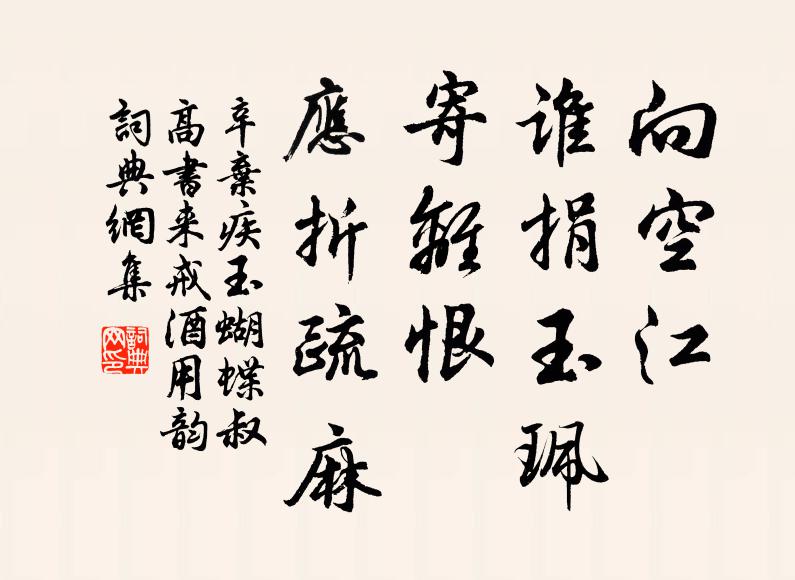 向空江
誰捐玉珮
寄離恨
應折疏麻
辛棄疾玉蝴蝶叔
高書来戒酒用韵
詞典網集
詞典网印